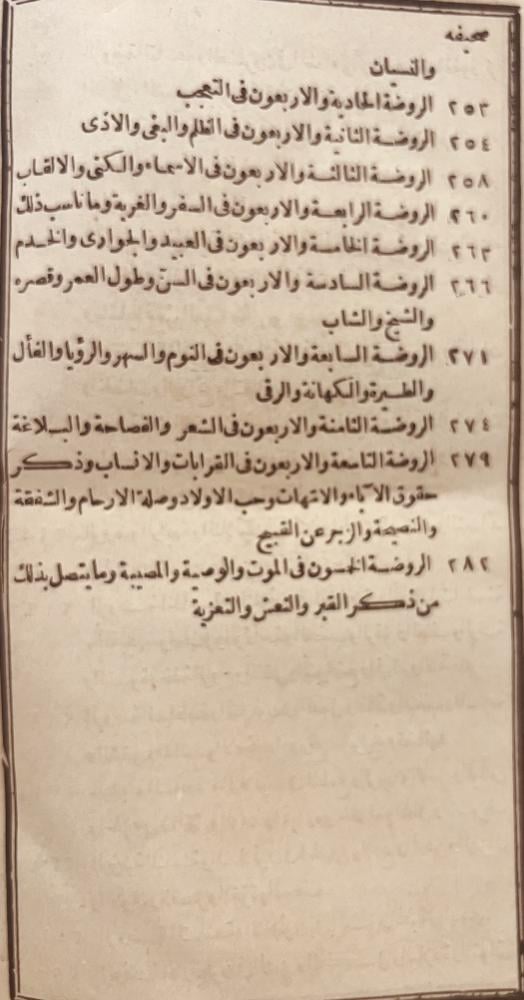 صحيفه
والنسيان
٢٥٣ الروضة الحادية والاربعون فى التعجب
٢٥٤ الروضة الثانية والاربعون فى الظلم والبغى والاذى
٢٥٨ الروضة الثالثة والاربعون فى الاسماء والكنى والالقاب
٢٦٠ الروضة الرابعة والاربعون فى السفر والغربة وما ناسب ذلك
٢٦٣ الروضة الخامسة والاربعون فى العبيد والجوارى والخدم
٢٦٦ الروضة السادسة والاربعون فى السنّ وطول العمر وقصره
والشيخ والشاب
٢٧١ الروضة السابعة والاربعون فى النوم والسهر والرؤيا والفأل
والطيرة والكهانة والرقى
٢٧٤ الروضة الثامنة والاربعون فى الشعر والفصاحة والبلاغة
٢٧٩ الروضة التاسعة والاربعون فى القرابات والانساب وذكر
حقوق الآباء والامّهات وحب الاولاد وصلة الارحام والشفقة
والنصيحة والزجر عن القبيح
٢٨٢ الروضة الخمسون فى الموت والوصية والمصيبة وما يتصل بذلك
من ذكر القبر والنعش والتعزية